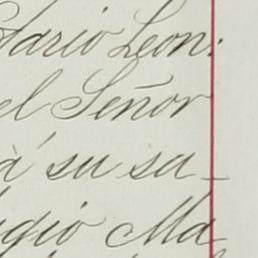 dario Leon:
el Señor
à su sa-
gio Ma